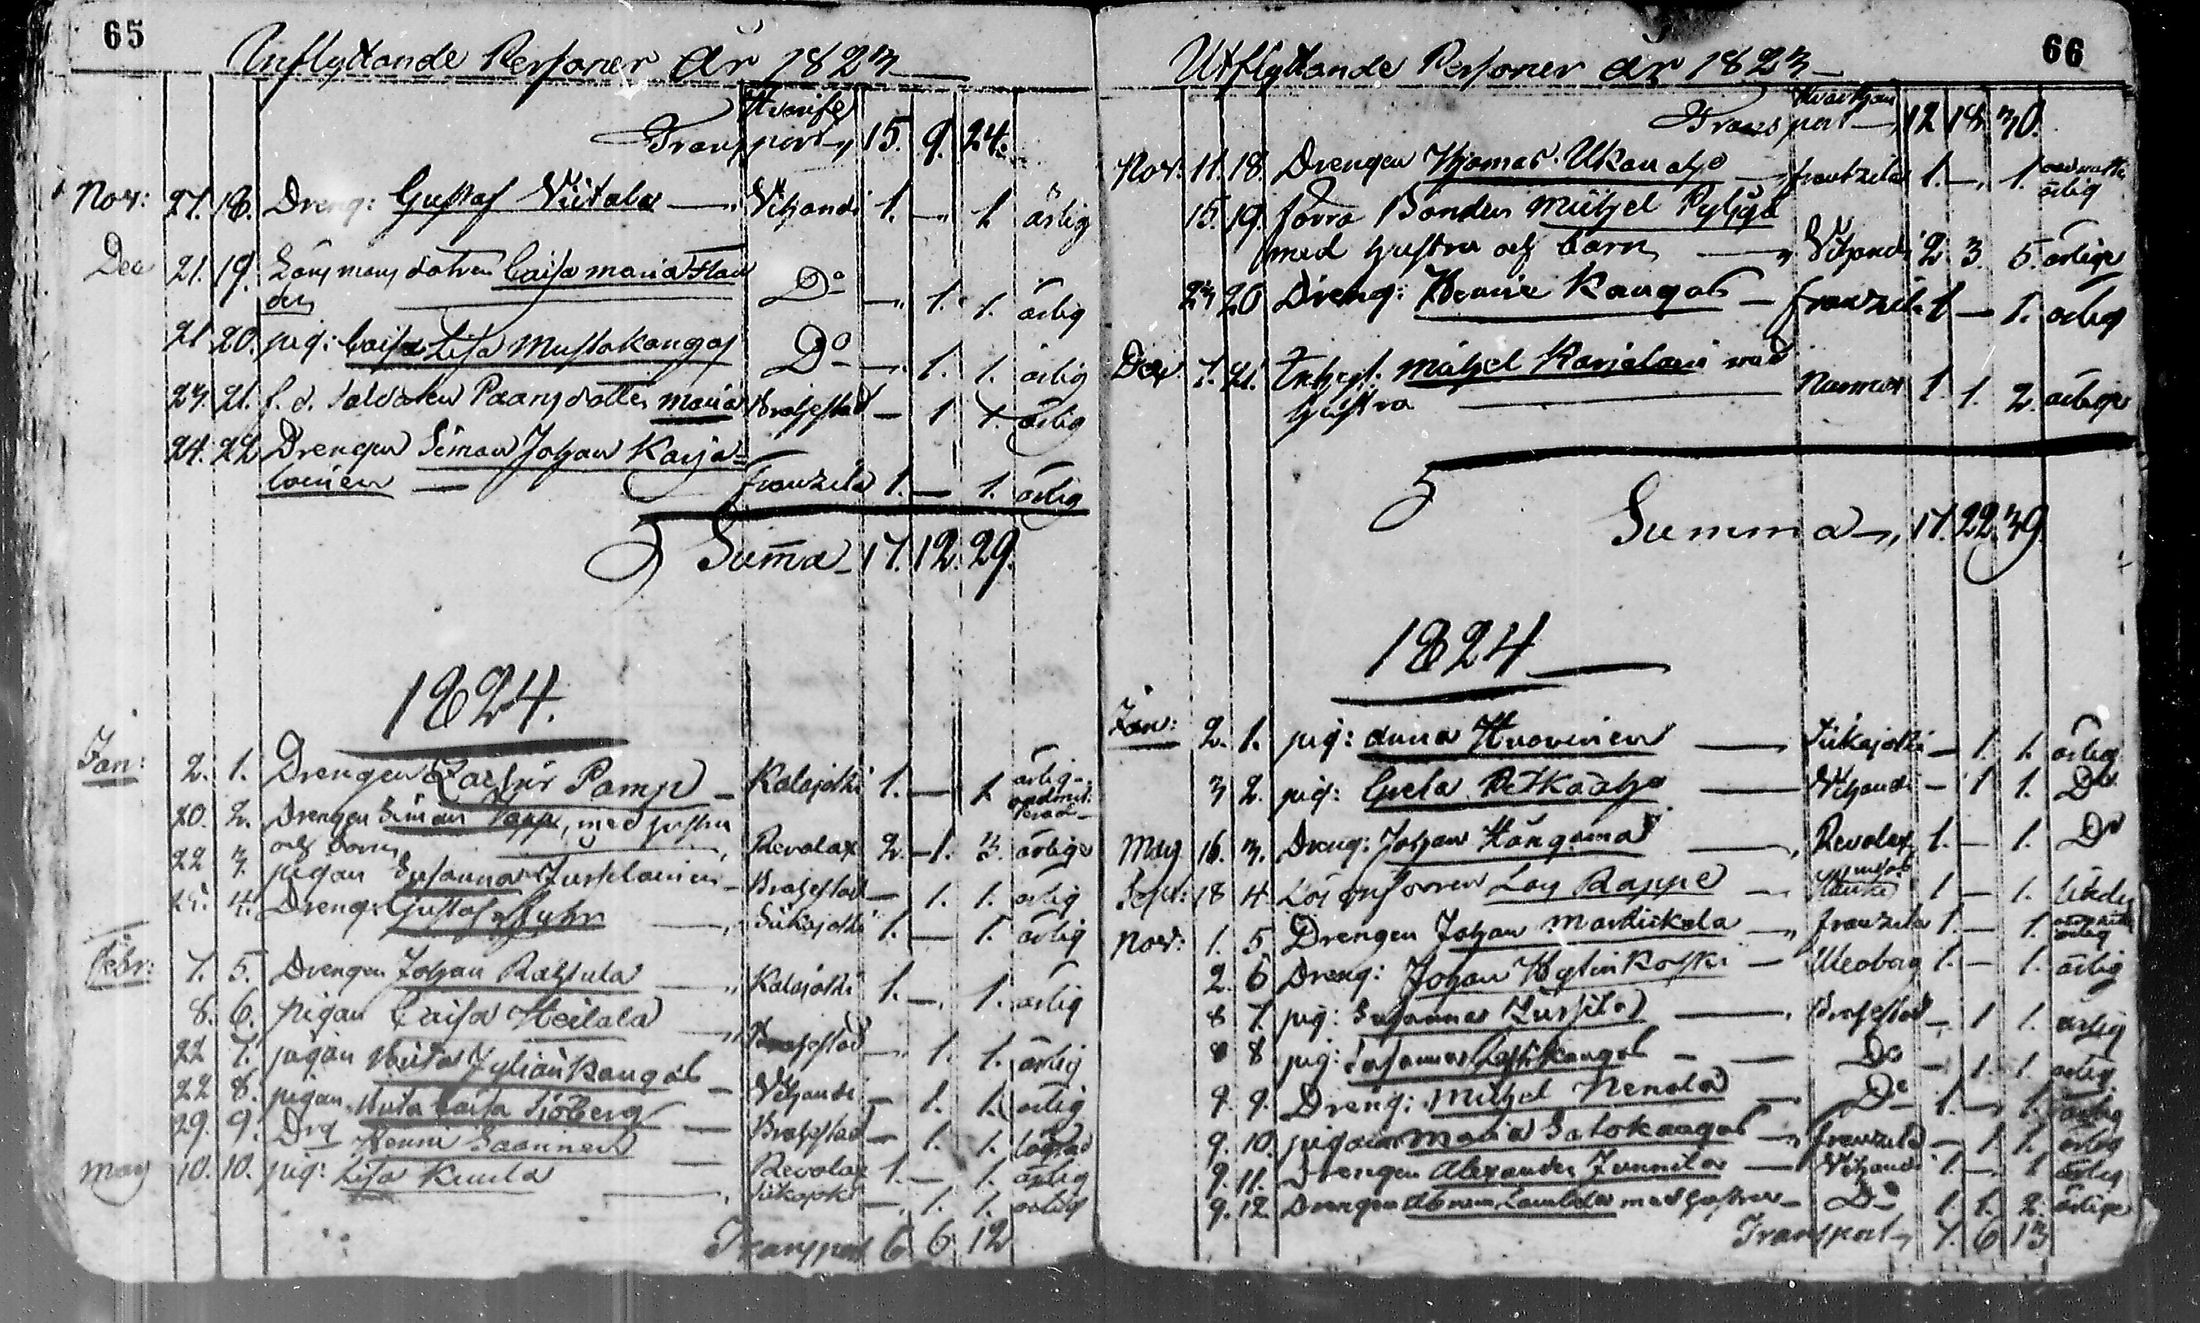 65
Inflyttande Personer År 1823
Hvarifr
Transport 15. 9. 24.
Nov: 27. 18. Dreng: Gustaf Viitala Vihandi 1. — 1 ärlig
Dec 21. 19. Caisa Maria Flan
der D:o — 1. 1. ärlig
21 20. pig: Caisa Lisa Mustakangas D:o — 1. 1. ärlig
23. 21. f. d. Soldaten Paangs dotter Maria Brahestad — 1 1. ärlig
24. 22 Drengen Simon Johan Karja-
lainen — Franzila 1. — 1. ärlig
Summa 17. 12. 29.
1824.
Jan: 2. 1. Drengen Zachris Pamp Kalajoki 1. — 1 ärlig
20. 2. Drengen Simon Papp, med hustru
och barn Revolax 2. 1. 3. ärlige
22 3. pigan Susanna Brahestad — 1. 1. ärlig
25. 4. Dreng: Gustaf Sikajoki 1. — 1. ärlig
Febr: 7. 5. Drengen Johan Kalajoki 1. — 1. ärlig
8. 6. pigan Caisa Heilala Brahestad — 1. 1. ärlig
22 7. pigan Vihandi — 1. 1. ärlig
22 8. pigan Caisa Sjöberg Brahestad — 1. 1.
29. 9. Drg Henric Saarinen Revolax 1. — 1. ärlig
May 10. 10. pig: Lisa Kuula Sikajoki — 1. 1. ärlig
Transport 6. 6 12
66
Utflyttande Personer år 1823
Transport 12 18. 30.
Nov: 11. 18. Drengen Thomas Ukonaho Frantzila 1. — 1. ärlig
15. 19. förra Bonden Michel Pyhäjä
med hustru och barn Vihandi 2. 3. 5. ärlige
23 20 Dreng: Henric Kangas Franzila 1 — 1. ärlig
Dec 7. 21. Inhys. Michel Karjalain med
hustru 1. 1. 2. ärlige
Summa 17. 22. 39.
1824
Jan: 2. 1. pig: Anna Huovinen Sikajoki — 1. 1. ärlig
3 2. pig: Greta Pitkäaho Vihandi — 1 1. D:o
May 16. 3. Dreng: Johan Hångsma Revolax 1. — 1. D:o
Sept: 18 4 Rappe 1 — 1.
Nov: 1. 5 Drengen Johan Martiskala Franzila 1. — 1. ärlig
2. 6 Dreng: Johan Hylin Koski Uleoborg 1. — 1. ärlig
8 7. pig: Susanna Brahestad — 1 1. ärlig
8 8 pig: Susanna D:o — 1. 1. ärlig
9. 9. Dreng: Michel Nenola D:o 1. — 1. ärlig
9. 10. pigan Maria Salokangas Franzila — 1 1. ärlig
9. 11. Drengen Alexander Junnila Vihandi 1. — 1 ärlig
9. 12. Drengen Abram med hustru D:o 1. 1. 2. ärlige
Transport 7. 6 13